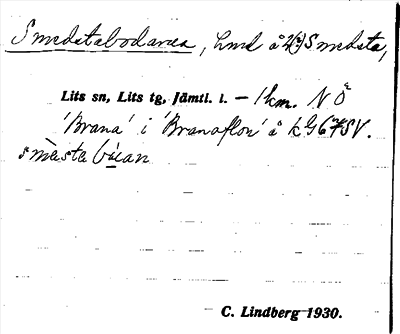 Smedstabodarna, hmd å 2/3 Smedsta,
Lits sn, Lits tg, Jämtl. l. – 1 km. N Ö
'Brana' i 'Branaflon' å kG67SV.
smästa búan
C. Lindberg 1930.